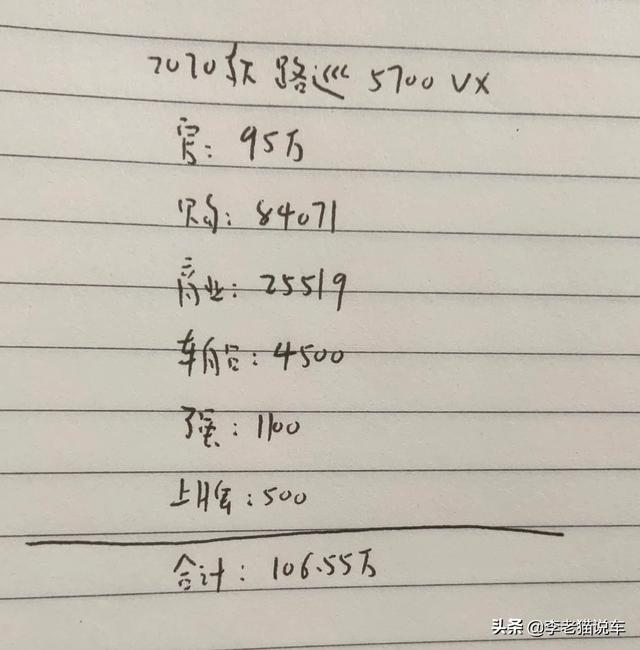 2020款 路巡 5700 VX
官: 95万
购: 84071
商业: 25519
车船: 4500
强: 1100
上牌: 500
合计: 106.55万
头条 @李老猫说车